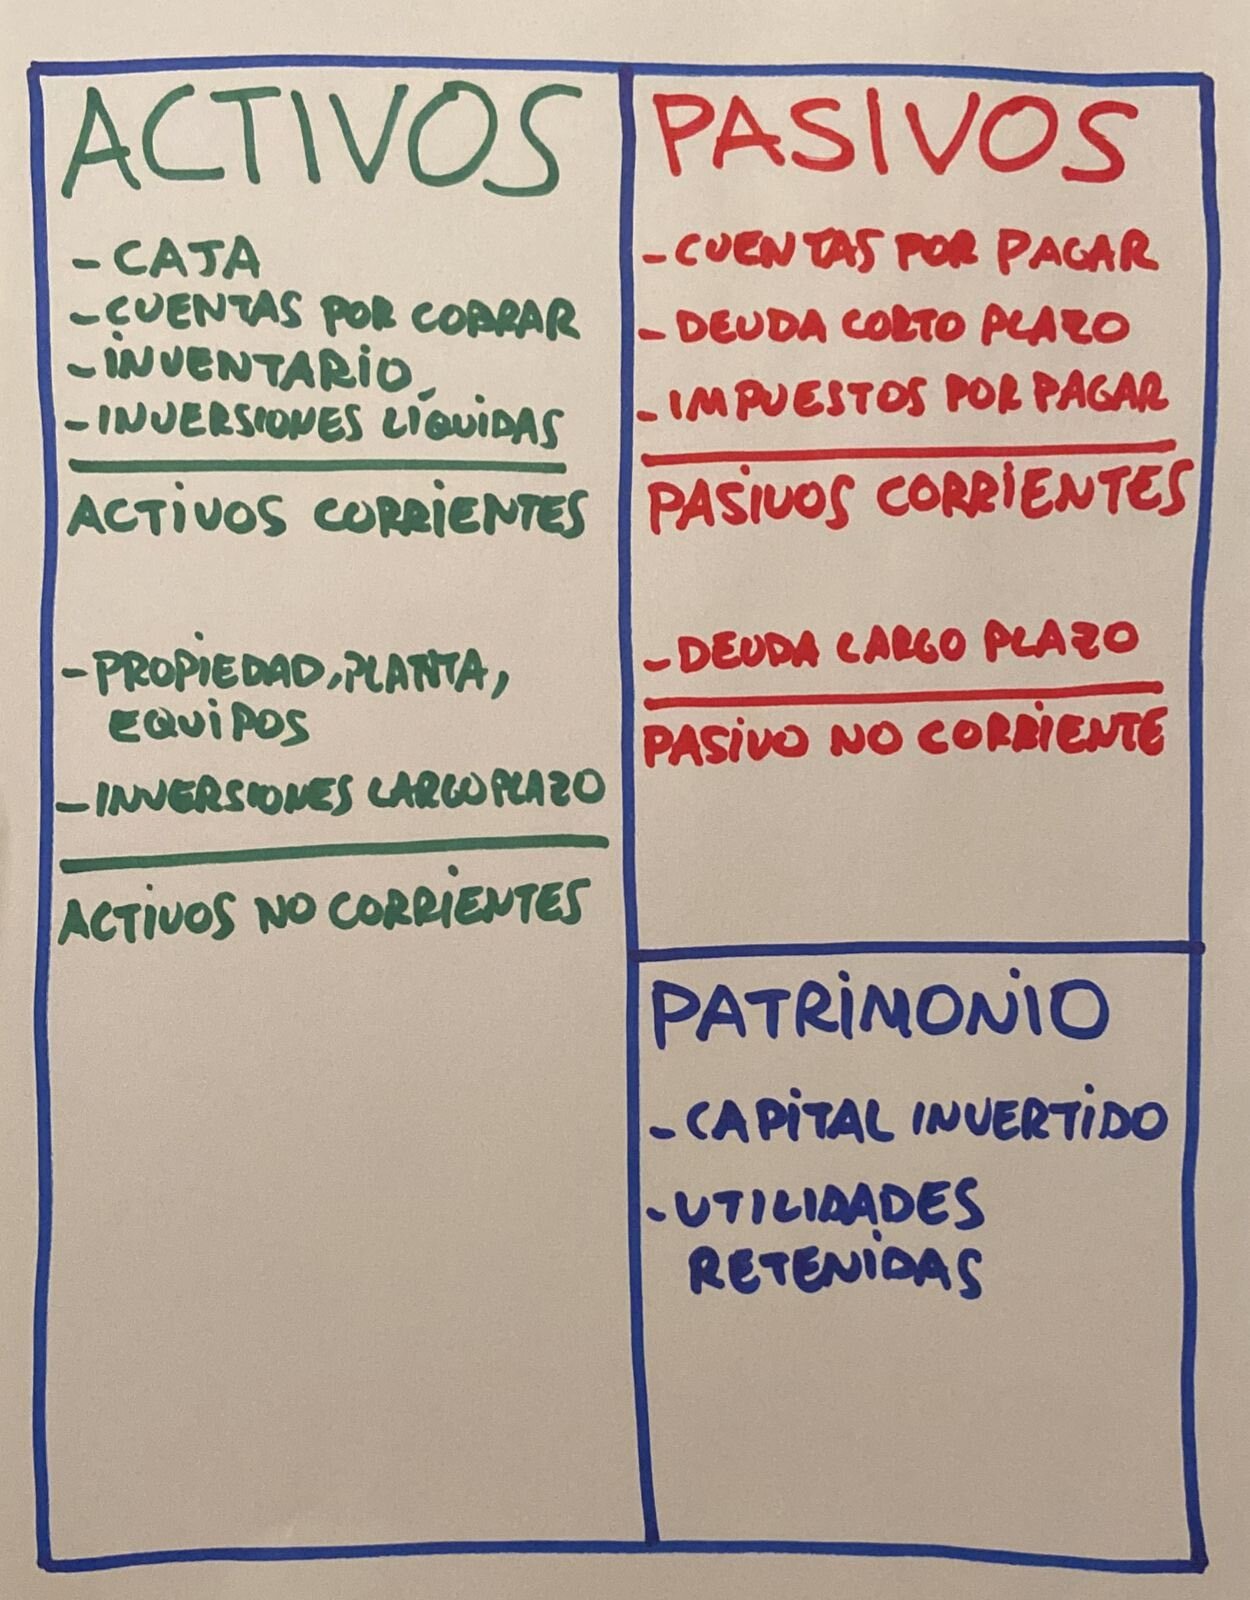 ACTIVOS
- CAJA
- CUENTAS POR COBRAR
- INVENTARIO
- INVERSIONES LÍQUIDAS
ACTIVOS CORRIENTES
- PROPIEDAD, PLANTA,
EQUIPOS
- INVERSIONES LARGO PLAZO
ACTIVOS NO CORRIENTES
PASIVOS
- CUENTAS POR PAGAR
- DEUDA CORTO PLAZO
- IMPUESTOS POR PAGAR
PASIVOS CORRIENTES
- DEUDA LARGO PLAZO
PASIVO NO CORRIENTE
PATRIMONIO
- CAPITAL INVERTIDO
- UTILIDADES
RETENIDAS